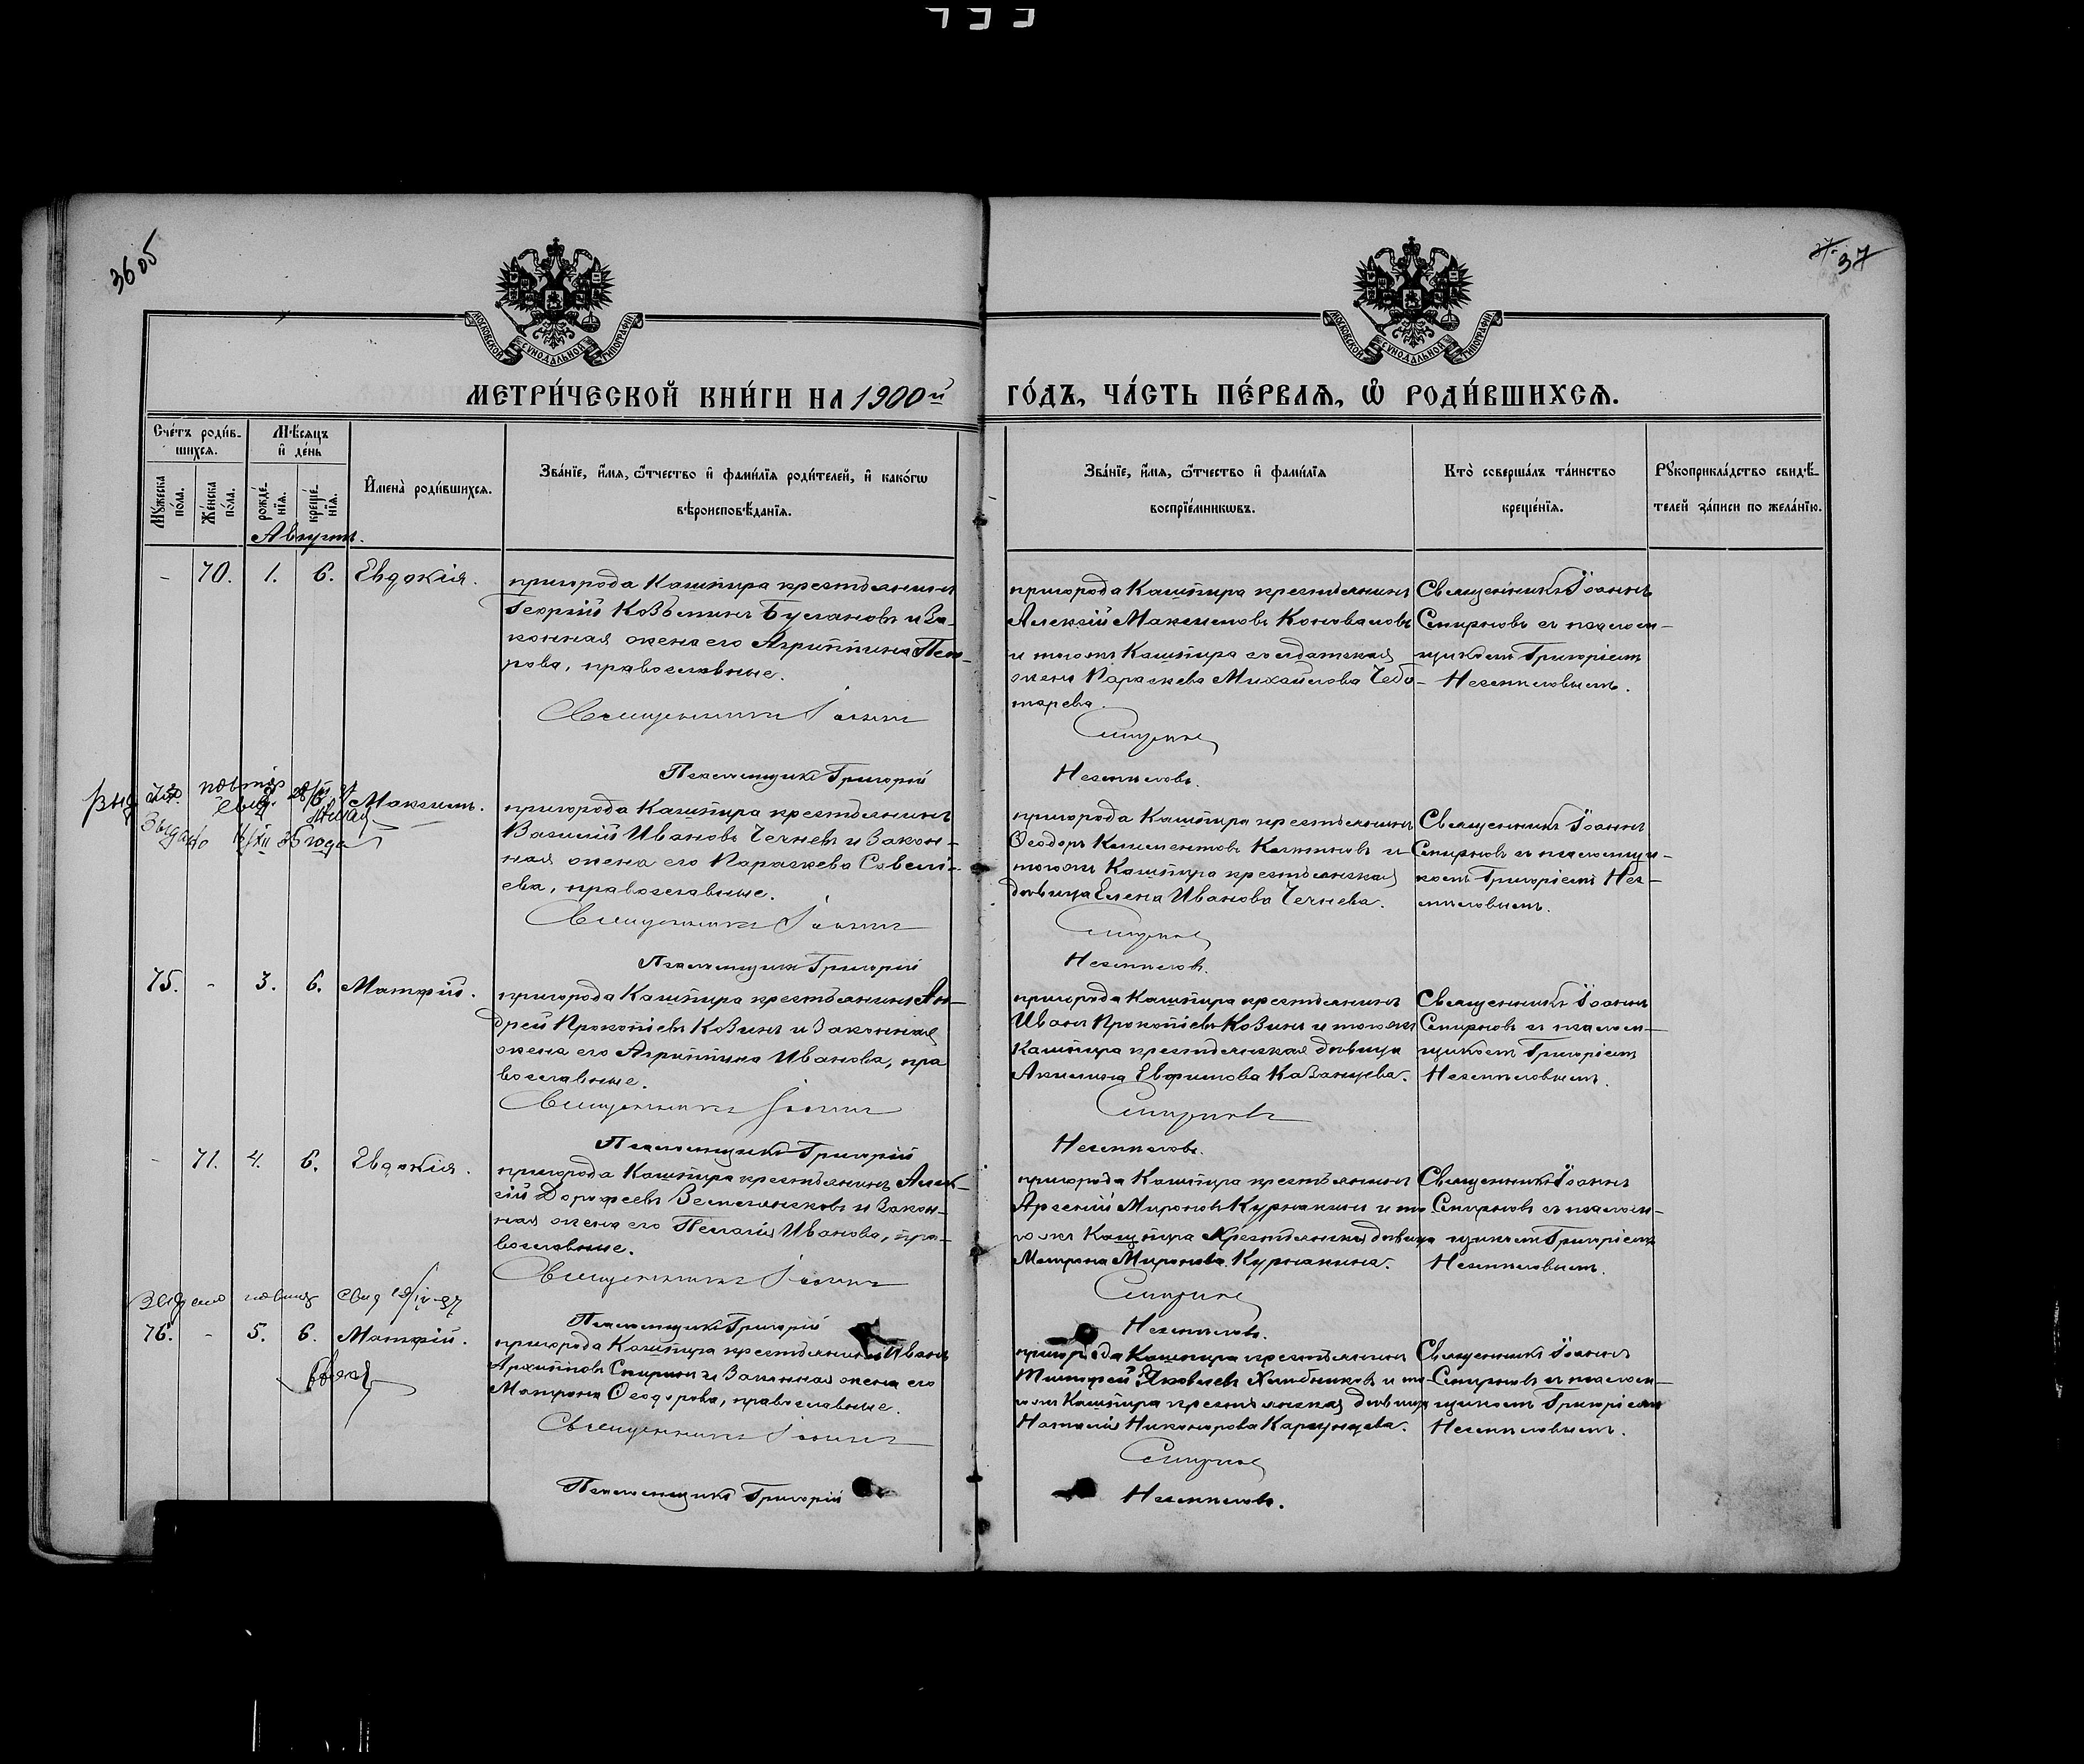 36 об
37
МОСКОВСКОЙ СУНОДАЛЬНОЙ ТИПОГРАФІИ
МОСКОВСКОЙ СУНОДАЛЬНОЙ ТИПОГРАФІИ
МЕТРИ́ЧЕСКОЙ КНИ́ГИ НА 1900й
ГО́ДЪ, ЧА́СТЬ ПЕ́РВАѦ, Ѽ РОДИ́ВШИХСѦ.
Сче́тъ роди́в-
шихсѧ.
Мѣ́сѧцъ
и҆ де́нь
Мꙋ́жеска
по́ла.
Же́нска
по́ла.
рожде́-
нїѧ.
креще́-
нїѧ.
И҆мена̀ роди́вшихсѧ.
Зва́нїе, и҆́мѧ, ѻ҆́тчество и҆ фами́лїѧ роди́телей, и҆ како́гѡ
вѣроисповѣ́данїѧ.
Зва́нїе, и҆́мѧ, ѻ҆́тчество и҆ фами́лїѧ
воспрїе́мникѡвъ.
Кто̀ соверша́лъ та́инство
креще́нїѧ.
Рꙋкоприкла́дство свидѣ́-
телей за́писи по жела́нїю.
Августъ.
- 70. 1. 6. Евдокія.
пригорода Кашпира крестьянинъ
Георгій Козьминъ Буслановъ и за-
конная жена его Агриппина Пет-
рова, православные.
Священникъ Іоаннъ
Псаломщикъ Григорій
пригорода Кашпира крестьянинъ
Алексій Максимовъ Коноваловъ
и тогоже Кашпира солдатская
жена Параскева Михайлова Чебо-
тарева.
Смирновъ
Несмеловъ.
Священникъ Іоаннъ
Смирновъ съ псалом-
щикомъ Григоріемъ
Несмеловымъ.
Максимъ.
Выдано 16/XII 35 года
пригорода Кашпира крестьянинъ
Василій Ивановъ Чечневъ и закон-
ная жена его Параскева Савелі-
ева, православные.
Священникъ Іоаннъ
Псаломщикъ Григорій
пригорода Кашпира крестьянинъ
Ѳеодоръ Климентовъ и
тогоже Кашпира крестьянская
дѣвица Елена Иванова Чечнева.
Смирновъ
Несмеловъ.
Священникъ Іоаннъ
Смирновъ съ псаломщи-
комъ Григоріемъ Нес-
меловымъ.
75. - 3. 6. Матѳій.
пригорода Кашпира крестьянинъ Ан-
дрей Прокопіевъ Козинъ и законная
жена его Агриппина Иванова, пра
вославные.
Священникъ Іоаннъ
Псаломщикъ Григорій
пригорода Кашпира крестьянинъ
Иванъ Прокопіевъ Козинъ и тогоже
Кашпира крестьянская дѣвица
Акилина Евфимова Казанцева.
Смирновъ
Несмеловъ.
Священникъ Іоаннъ
Смирновъ съ псалом-
щикомъ Григоріемъ
Несмеловымъ.
- 71. 4. 6. Евдокія.
пригорода Кашпира крестьянинъ Алек-
сій Дорофеевъ Земсковъ и закон-
ная жена его Пелагія Иванова, пра-
вославные.
Священникъ Іоаннъ
Псаломщикъ Григорій
пригорода Кашпира крестьянинъ
Арсеній Мироновъ Курнакинъ и то
гоже Кашпира крестьянская дѣвица
Матрона Миронова Курнакина.
Смирновъ
Несмеловъ.
Священникъ Іоаннъ
Смирновъ съ псалом-
щикомъ Григоріемъ
Несмеловымъ.
Выдано свид
76. - 5. 6. Матѳій.
пригорода Кашпира крестьянинъ Иванъ
Архиповъ Спиринъ и законная жена его
Матрона Ѳеодорова, православные.
Священникъ Іоаннъ
Псаломщикъ Григорій
пригорода Кашпира крестьянинъ
Тимофей Яковлевъ Хлебниковъ и то-
гоже Кашпира крестьянская дѣвица
Наталія Никонорова Карсунцева.
Смирновъ
Несмеловъ.
Священникъ Іоаннъ
Смирновъ съ псалом-
щикомъ Григоріемъ
Несмеловымъ.